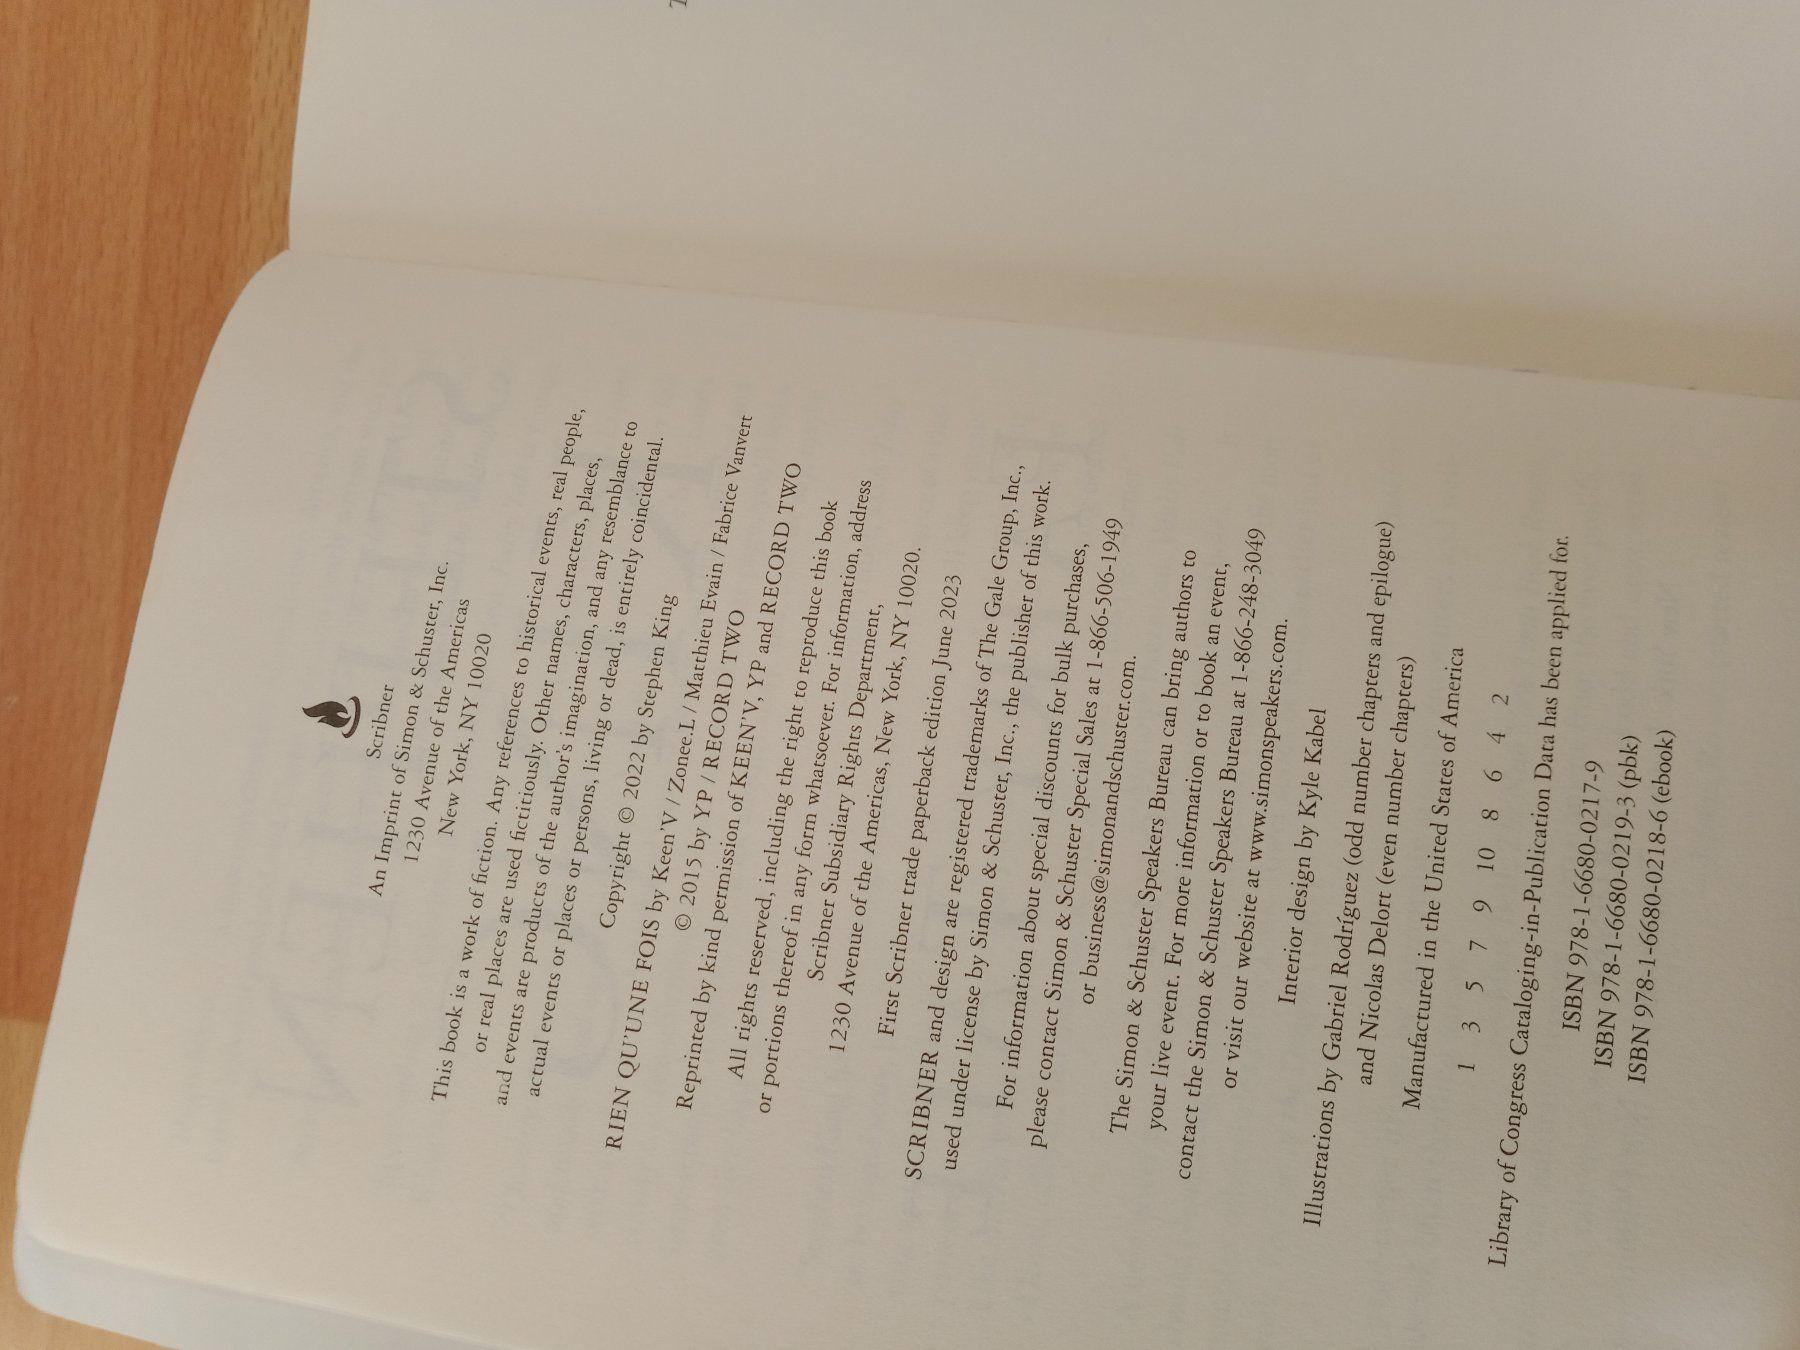 Scribner
An Imprint of Simon & Schuster, Inc.
1230 Avenue of the Americas
New York, NY 10020
This book is a work of fiction. Any references to historical events, real people,
or real places are used fictitiously. Other names, characters, places,
and events are products of the author's imagination, and any resemblance to
actual events or places or persons, living or dead, is entirely coincidental.
Copyright © 2022 by Stephen King
RIEN QU'UNE FOIS by Keen'V / Zonee.L / Matthieu Evain / Fabrice Vanvert
© 2015 by YP / RECORD TWO
Reprinted by kind permission of KEEN'V, YP and RECORD TWO
All rights reserved, including the right to reproduce this book
or portions thereof in any form whatsoever. For information, address
Scribner Subsidiary Rights Department,
1230 Avenue of the Americas, New York, NY 10020.
First Scribner trade paperback edition June 2023
SCRIBNER and design are registered trademarks of The Gale Group, Inc.,
used under license by Simon & Schuster, Inc., the publisher of this work.
For information about special discounts for bulk purchases,
please contact Simon & Schuster Special Sales at 1-866-506-1949
or business@simonandschuster.com.
The Simon & Schuster Speakers Bureau can bring authors to
your live event. For more information or to book an event,
contact the Simon & Schuster Speakers Bureau at 1-866-248-3049
or visit our website at www.simonspeakers.com.
Interior design by Kyle Kabel
Illustrations by Gabriel Rodríguez (odd number chapters and epilogue)
and Nicolas Delort (even number chapters)
Manufactured in the United States of America
1 3 5 7 9 10 8 6 4 2
Library of Congress Cataloging-in-Publication Data has been applied for.
ISBN 978-1-6680-0217-9
ISBN 978-1-6680-0219-3 (pbk)
ISBN 978-1-6680-0218-6 (ebook)